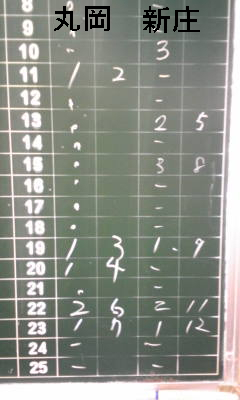 8 -
丸岡 新庄
9
10 . 3
11 1 2 -
12 . -
13 . 2 5
14 . -
15 . 3 8
16 . -
17 . -
18 . -
19 1 3 1 . 9
20 1 4 -
21 . -
22 2 6 2 11
23 1 7 1 12
24 - -
25 - -